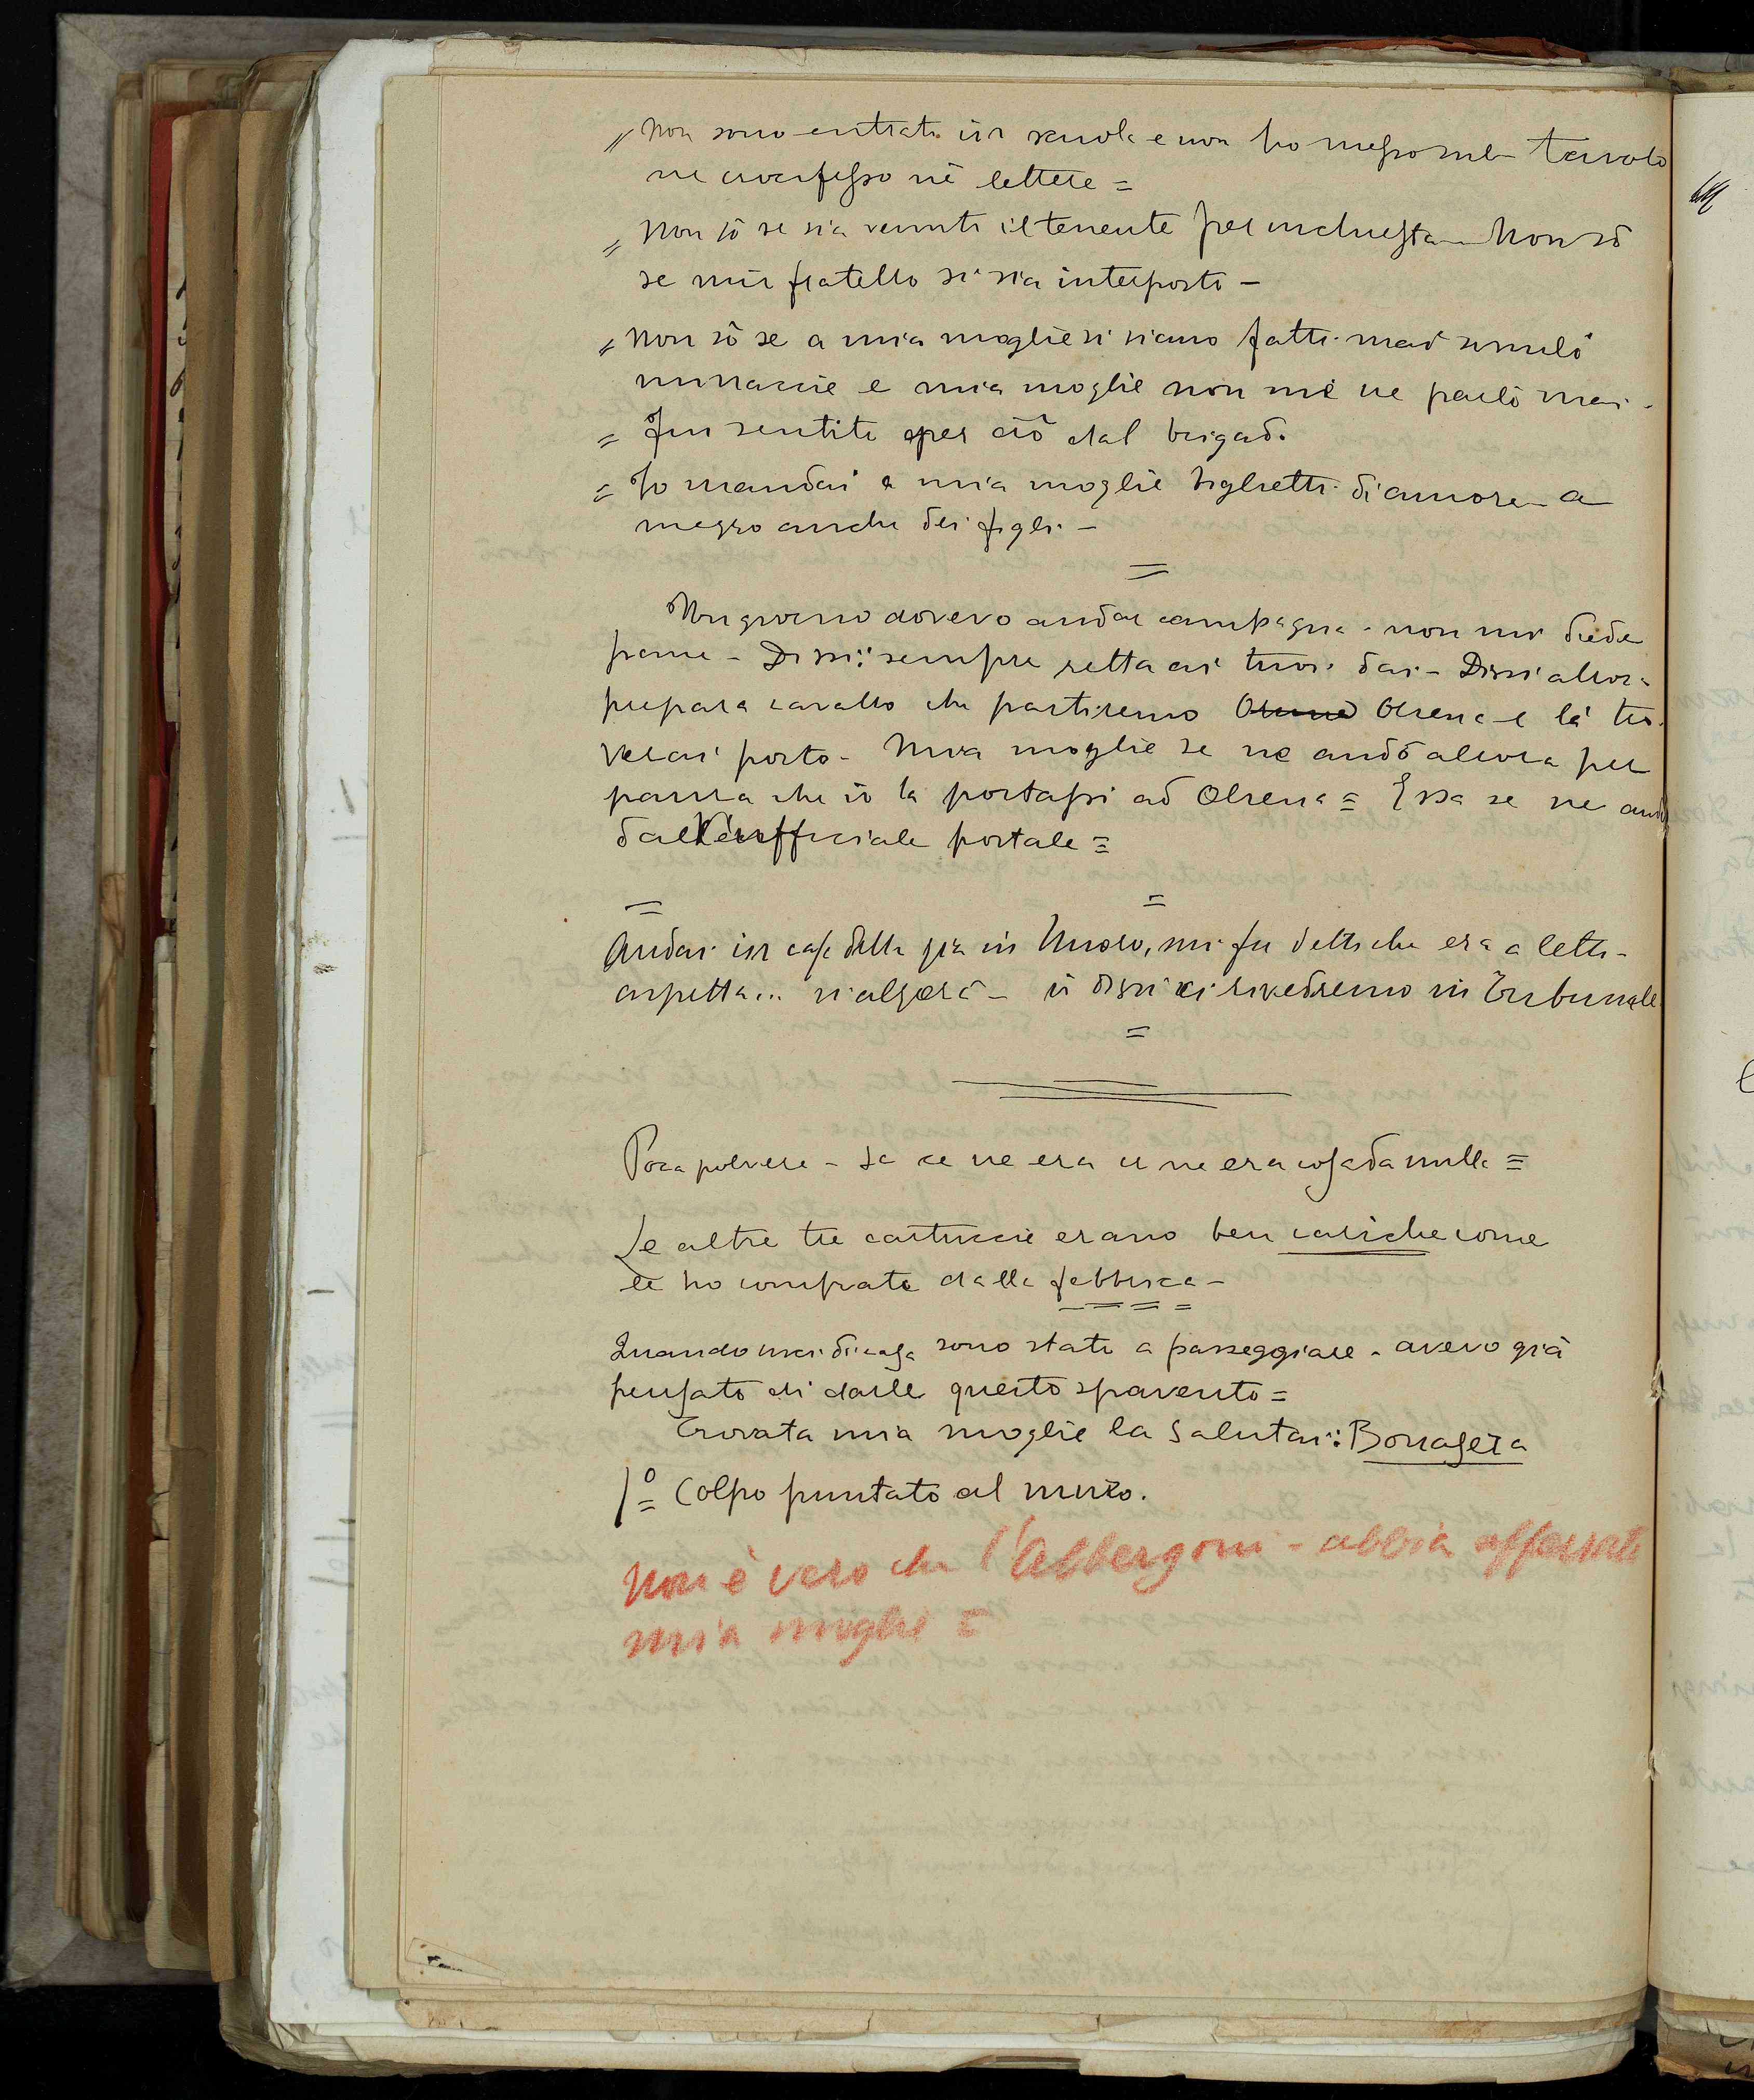 = Non sono entrato in scuola e non ho messo sul tavolo
ne crocifisso nè lettere =
= Non sò se sia venuto il tenente per inchiesta — Non sò
se mio fratello si sia interposto —
= Non sò se a mia moglie si siano fatti mai simili
minaccie e mia moglie non me ne parlò mai -
= Fui sentito per ciò dal brigad.
= Io mandai a mia moglie biglietti di amore a
mezzo anche dei figli —
=
Un giorno dovevo andar campagna - non mi diede
pane - Dissi: sempre retta ai tuoi dai - Dissi allora
prepara cavallo che partiremo Olzena e là tro-
verai posto - Mia moglie se ne andò allora per
paura che io la portassi ad Olzena = Essa se ne andò
dall'ufficiale postale =
= =
Andai in casa della zia in Nuoro, mi fu detto che era a letto -
aspetta... si alzerà - io dissi ci rivedremo in Tribunale
=
Poca polvere - se ce ne era ce ne era cosa da nulla =
Le altre tre cartuccie erano ben cariche come
le ho comprate dalla fabbrica -
Quando uscii di casa sono stato a passeggiare - avevo già
pensato di darle questo spavento =
Trovata mia moglie la salutai: Bonasera
1º = Colpo puntato al muro.
Non è vero che l'Albergoni - abbia afferrato
mia moglie =